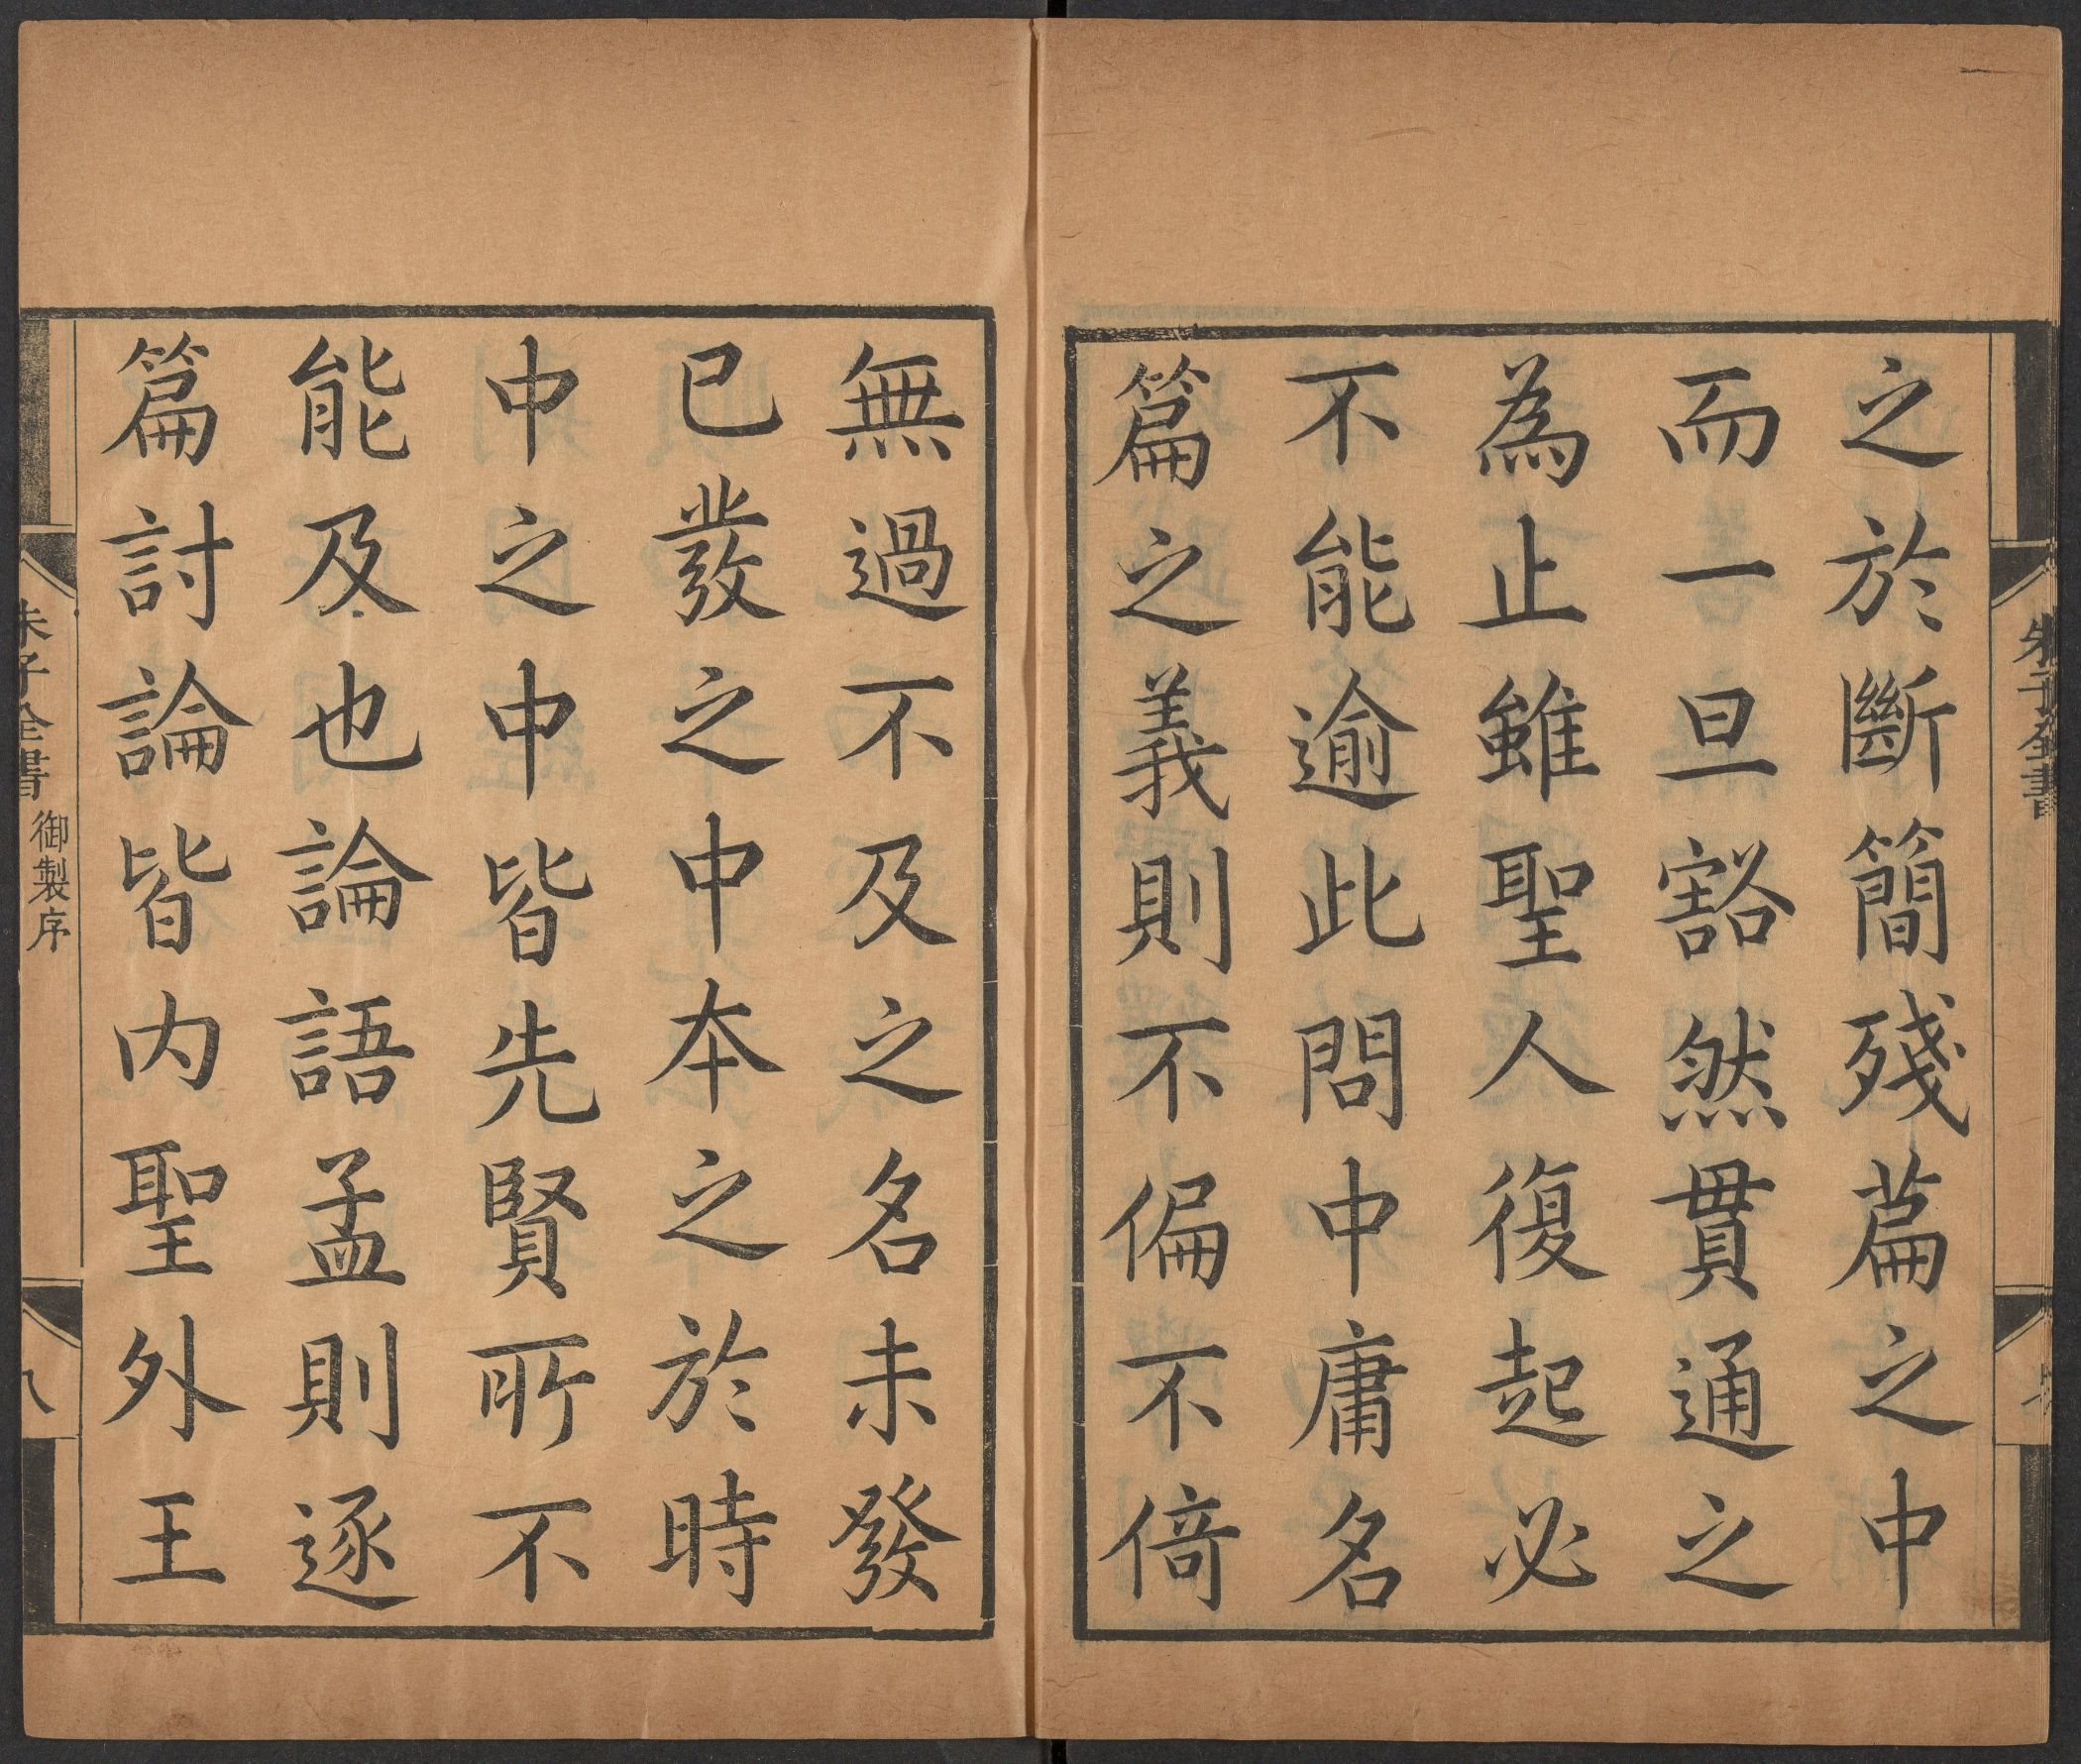 之於斷簡殘篇之中
而一旦豁然貫通之
為止雖聖人復起必
不能逾此問中庸名
篇之義則不偏不倚
無過不及之名未發
已發之中本之於時
中之中皆先賢所不
能及也論語孟則逐
篇討論皆内聖外王
朱子全書
朱子全書 御製序
八